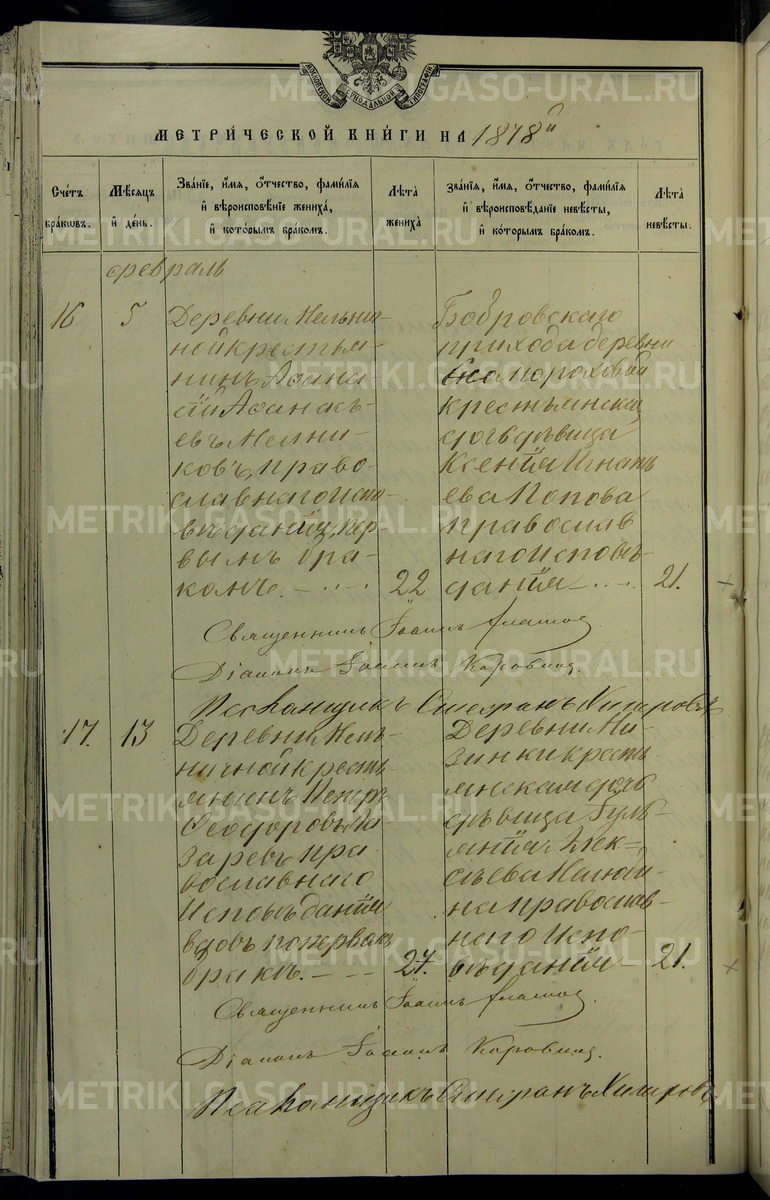 МОСКОВСКОЙ СУНОДАЛЬНОЙ ТИПОГРАФІИ
METRIKI.GASO-URAL.RU
МЕТРИ́ЧЕСКОЙ КНИ́ГИ НА 1878й
Счетъ браковъ.
Мѣсяцъ и день.
Званіе, имя, отчество, фамилія и вѣроисповѣніе жениха, и которымъ бракомъ.
Лѣта жениха
Званія, имя, отчество, фамилія и вѣроисповѣданіе невѣсты, и которымъ бракомъ.
Лѣта невѣсты.
февраль
16
5
Деревни Мельнич-
ной крестья-
нинъ Аѳана
сій Аѳанась-
евъ Мельни-
ковъ, право-
славнаго испо-
вѣданія, пер-
вымъ бра-
комъ.
22
Бобровскаго
прихода деревни
крестьянская
дочь дѣвица
Ксенія Игнать
ева Попова
православ
наго исповѣ-
данія
21.
Священникъ Іоаннъ
Діаконъ Іоаннъ Коровинъ.
Псаломщикъ Стефанъ
17.
13
Деревни Мель-
ничной кресть-
янинъ Петръ
Ѳеодоровъ Ла-
заревъ пра-
вославнаго
Исповѣданія
вдовъ по первомъ
бракѣ.
27.
Деревни Ми-
зинки кресть-
янская дочь
дѣвица Іуль-
янія Алек-
сѣева
на православ-
наго испо-
вѣданія
21.
Священникъ Іоаннъ
Діаконъ Іоаннъ Коровинъ.
Псаломщикъ Стефанъ